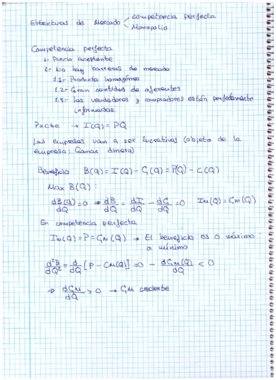 Estructuras de Mercado < competencia perfecta
Monopolio
Competencia perfecta
1- Precio aceptante
2- No hay barreras de mercado
2.1- Producto homogéneo
2.2- Gran cantidad de oferentes
2.3- Los vendedores y compradores están perfectamente
informados
P=cte → I(Q) = PQ
Las empresas van a ser lucrativas (objeto de la
empresa: Ganar dinero)
Beneficio B(Q) = I(Q) - C(Q) = P(Q) - C(Q)
Max B(Q):
dB(Q)/dQ = 0 ⇒ dB/dQ = dI/dQ - dC/dQ = 0 Im(Q) = Cm(Q)
En competencia perfecta
Im(Q) = P = Cm(Q) → El beneficio es o máximo
o mínimo
d²B/dQ² = d/dQ [P - Cm(Q)] = 0 - dCm(Q)/dQ < 0
⇒ dCm/dQ > 0 → Cm creciente